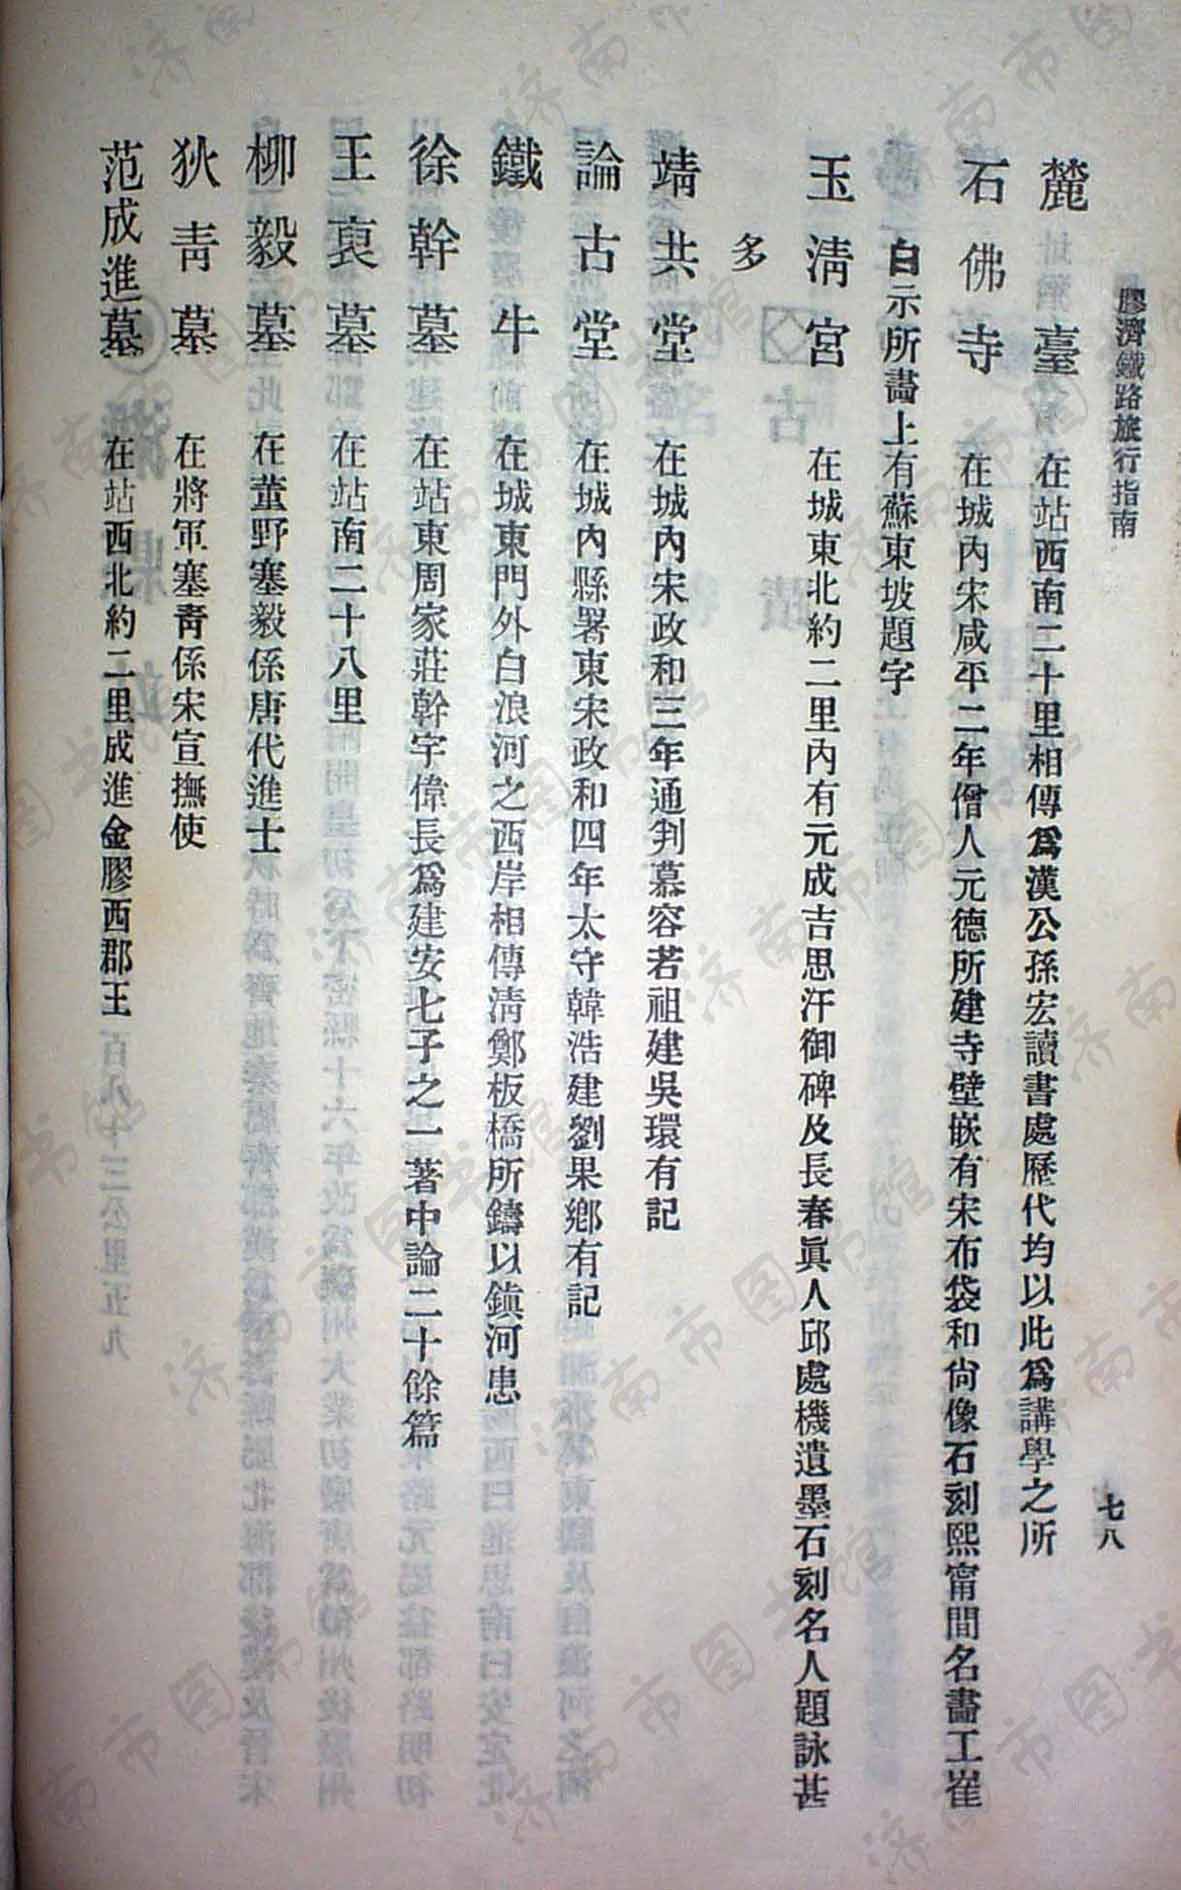 膠濟鐵路旅行指南
七八
麓臺 在站西南二十里相傳爲漢公孫宏讀書處歷代均以此爲講學之所
石佛寺 在城內宋咸平二年僧人元德所建寺壁嵌有宋布袋和尙像石刻熙甯間名畵工崔
白示所畵上有蘇東坡題字
玉淸宮 在城東北約二里內有元成吉思汗御碑及長春眞人邱處機遺墨石刻名人題詠甚
多
靖共堂 在城內宋政和三年通判慕容若祖建吳環有記
論古堂 在城內縣署東宋政和四年太守韓浩建劉果鄕有記
鐵牛 在城東門外白浪河之西岸相傳淸鄭板橋所鑄以鎭河患
徐幹墓 在站東周家莊幹字偉長爲建安七子之一著中論二十餘篇
王裒墓 在站南二十八里
柳毅墓 在董野塞毅係唐代進士
狄靑墓 在將軍塞靑係宋宣撫使
范成進墓 在站西北約二里成進金膠西郡王
济南市图书馆